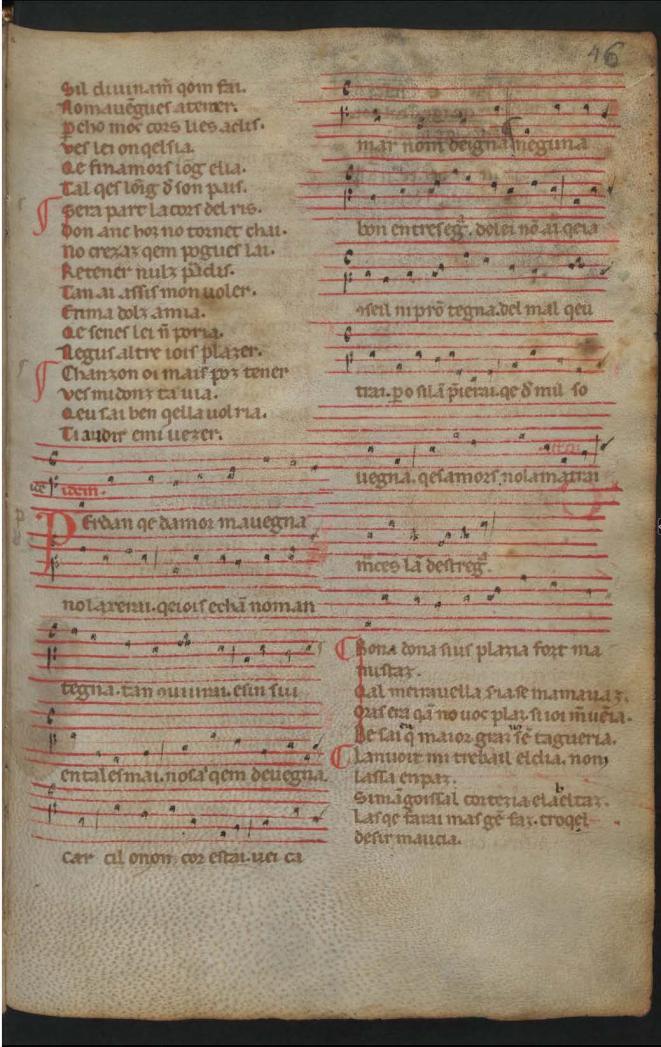 46
Sil diuinam̄ qom fai.
Nomauēgues atener.
p̱ cho moc cors lies aclis.
ves lei on qelsia.
Qe finamors iōg elia.
Tal qes lōig d̄ son pais.
Sera part lacors del ris.
Don anc hoz no tornet chai.
No crezaz qem pogues lai.
Retener nulz
Tan ai assis mon uoler.
Etima dolz amia.
Qe senes lei n̄ poria.
Negus altre iois plazer.
Chanzon oi mais poz tener
ves midonz ta uia.
Qeu sai ben qella uolria.
Ti audir emi uezer.
idem.
PErdan qe damor mauegna
nolarenri. qeiois echā noman
tegna. tan esin sui
ental esmai. nosaʼ qem deuegna.
car cil onon cor estai. uei ca
mar nom deigna neguna
bon entreseg. dolei nō ai qeia

seil ni prō tegna. del mal qeu
trai. p̱o silā p̄ierai. qe d̄ mil so
uegna. qesamors nolamatrai
m̄ces lā destreg.
Bona dona sius plazia fort ma
nistaz.
Qal merauella siase mamauaz.
Oras era qā no uoc plai. si ioi m̄ uēia.
De sai q̄ maior graz sē tagueria.
Lanuoit mi trebail eldia. nom
lassa en paz.
Si māgoissal cortezia elabeltaz.
Las qe farai mas gē faz. troqel
desir maucia.